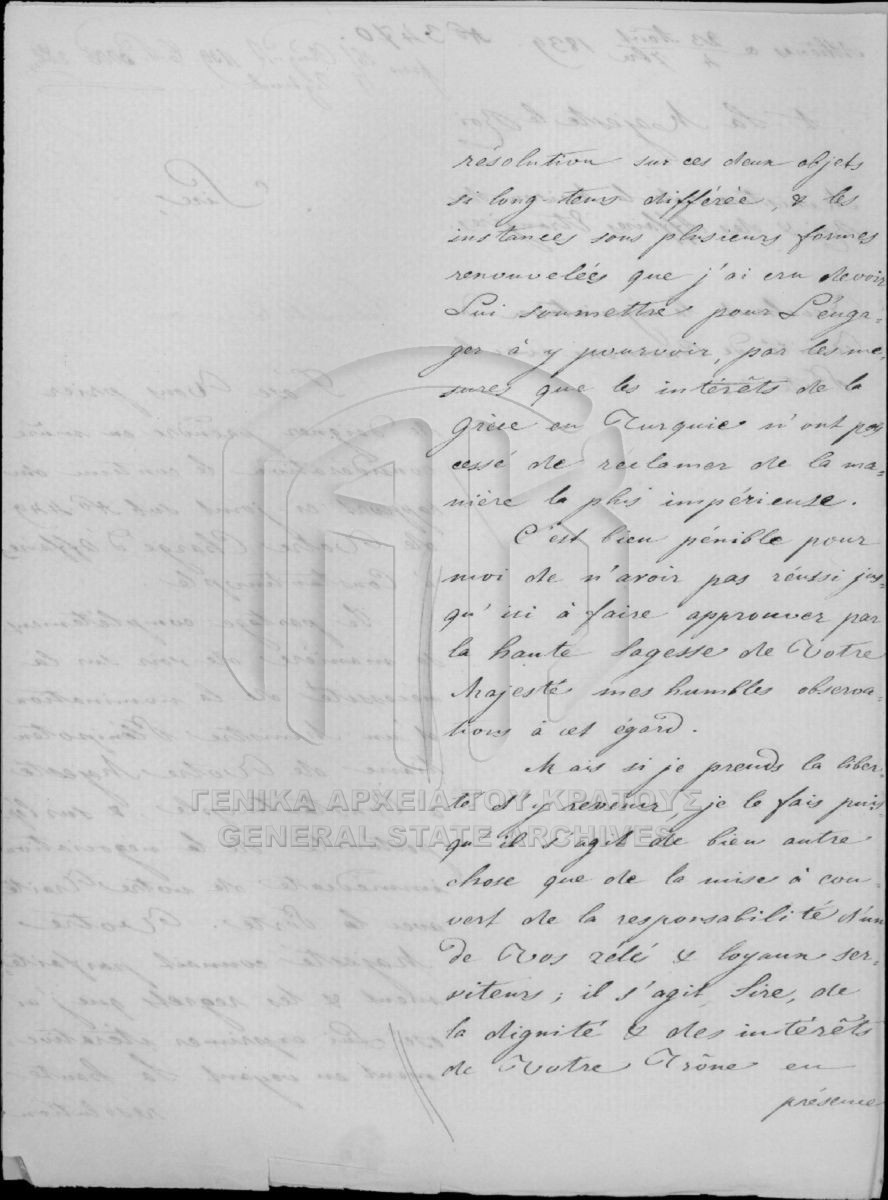 résolution sur ces deux objets
si long-tems différée, & les
instances sous plusieurs formes
renouvelées que j'ai cru devoir
Lui soumettre pour L'enga-
ger à y pourvoir, par les me-
sures que les intérêts de la
Grèce en Turquie n'ont pas
cessé de réclamer de la ma-
nière la plus impérieuse.
C'est bien pénible pour
moi de n'avoir pas réussi jus-
qu'ici à faire approuver par
la haute Sagesse de Votre
Majesté mes humbles observa-
tions à cet égard.
Mais si je prends la liber-
té d'y revenir, je le fais puis-
qu'il s'agit de bien autre
chose que de la mise à cou-
vert de la responsabilité d'un
de Vos zélés & loyaux ser-
viteurs; il s'agit, Sire, de
la dignité & des intérêts
de Votre Trône en
présence
ΓΕΝΙΚΑ ΑΡΧΕΙΑ ΤΟΥ ΚΡΑΤΟΥΣ
GENERAL STATE ARCHIVES